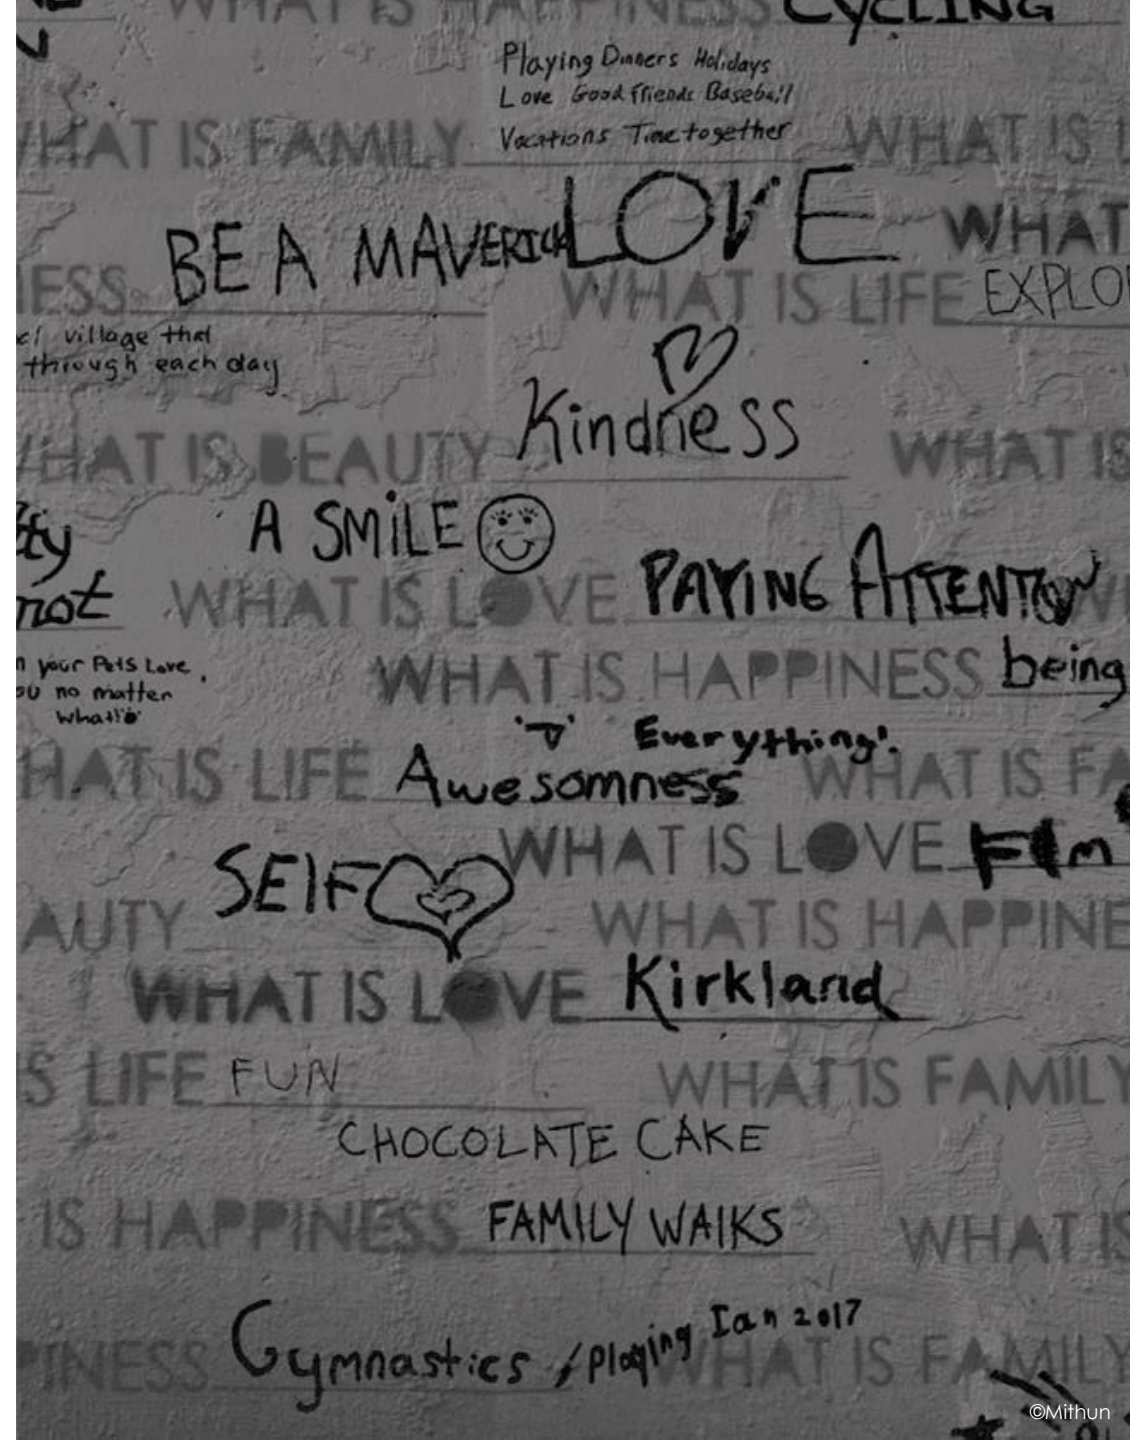 WHAT IS HAPPINESS CYCLING
Playing Dinners Holidays
Love Good friends Baseball
Vacations Time together
WHAT IS FAMILY
WHAT IS L
LOVE
BE A MAVERICK
WHAT
ESS
WHAT IS LIFE EXPLO
village that
through each day
Kindness
HAT IS BEAUTY
WHAT IS
A SMiLE
ty
not
WHAT IS LOVE PAYING ATTENTION
n your Pets Love,
ou no matter
what
WHAT IS HAPPINESS being
Everything!
HAT IS LIFE Awesomness
WHAT IS FA
WHAT IS LOVE
SElF
AUTY
WHAT IS HAPPINE
WHAT IS LOVE Kirkland
S LIFE FUN
WHAT IS FAMILY
CHOCOLATE CAKE
IS HAPPINESS FAMILY WAlKS
WHAT IS
Gymnastics / playing Ian 2017
PINESS
WHAT IS FAMILY
©Mithun